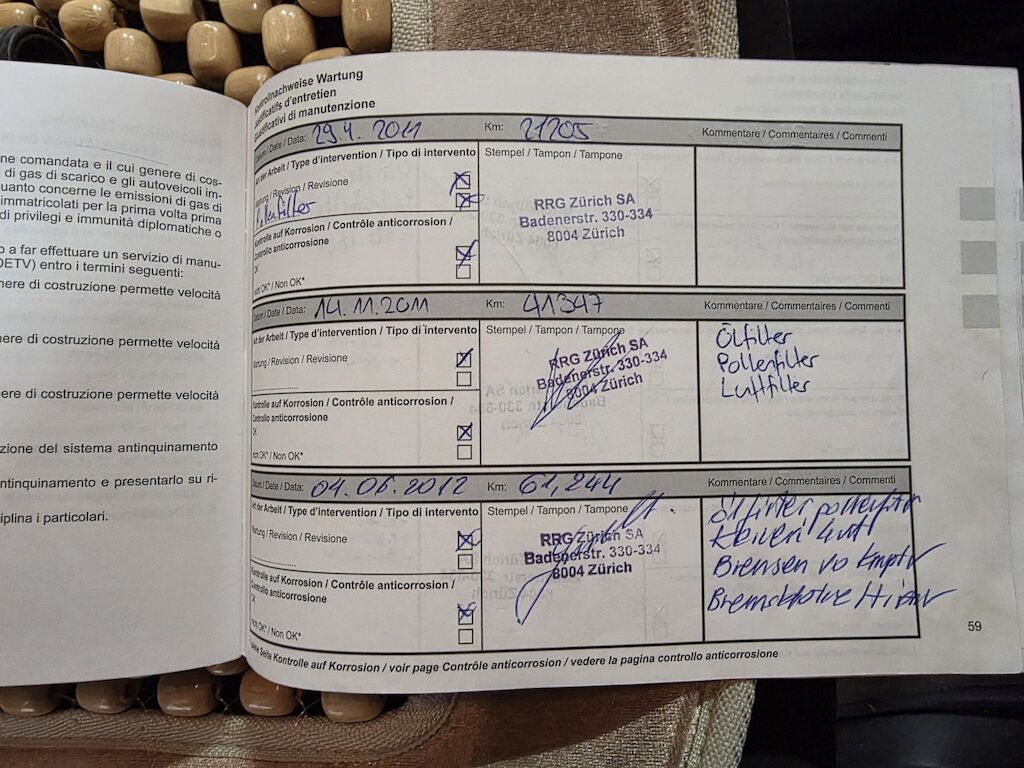 ne comandata e il cui genere di cos-
di gas di scarico e gli autoveicoli im-
quanto concerne le emissioni di gas di
immatricolati per la prima volta prima
di privilegi e immunità diplomatiche o
o a far effettuare un servizio di manu-
OETV) entro i termini seguenti:
nere di costruzione permette velocità
nere di costruzione permette velocità
ere di costruzione permette velocità
zione del sistema antinquinamento
ntinquinamento e presentarlo su ri-
iplina i particolari.
Kontrollnachweise Wartung
Justificatifs d'entretien
Giustificativi di manutenzione
Datum / Date / Data: 29.4. 2011 Km: 21205 Kommentare / Commentaires / Commenti
Art der Arbeit / Type d'intervention / Tipo di intervento Stempel / Tampon / Tampone
Wartung / Revision / Revisione
Pollenfilter
RRG Zürich SA
Badenerstr. 330-334
8004 Zürich
Kontrolle auf Korrosion / Contrôle anticorrosion /
Controllo anticorrosione
OK
nicht OK* / Non OK*
Datum / Date / Data: 14.11.2011 Km: 41347 Kommentare / Commentaires / Commenti
Art der Arbeit / Type d'intervention / Tipo di intervento Stempel / Tampon / Tampone
Wartung / Revision / Revisione
RRG Zürich SA
Badenerstr. 330-334
8004 Zürich
Ölfilter
Pollenfilter
Luftfilter
Kontrolle auf Korrosion / Contrôle anticorrosion /
Controllo anticorrosione
OK
nicht OK* / Non OK*
Datum / Date / Data: 04.06.2012 Km: 61,244 Kommentare / Commentaires / Commenti
Art der Arbeit / Type d'intervention / Tipo di intervento Stempel / Tampon / Tampone
Wartung / Revision / Revisione
RRG Zürich SA
Badenerstr. 330-334
8004 Zürich
Ölfilter
Bremsen
Kontrolle auf Korrosion / Contrôle anticorrosion /
Controllo anticorrosione
OK
nicht OK* / Non OK*
* Siehe Seite Kontrolle auf Korrosion / voir page Contrôle anticorrosion / vedere la pagina controllo anticorrosione
59